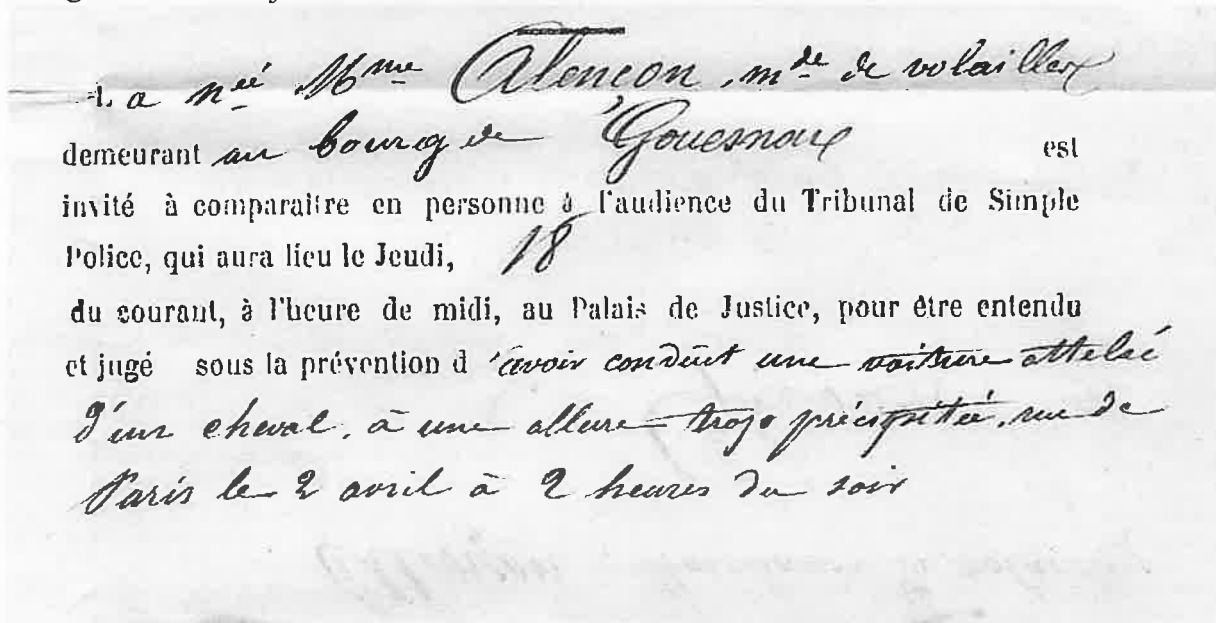 La née Mme Alencon, mde de volailles
demeurant au bourg de Gouesnou est
invité à comparaître en personne à l'audience du Tribunal de Simple
Police, qui aura lieu le Jeudi, 18
du courant, à l'heure de midi, au Palais de Justice, pour être entendu
et jugé sous la prévention d'avoir conduit une voiture attelée
d'un cheval, à une allure trop précipitée, rue de
Paris le 2 avril à 2 heures du soir